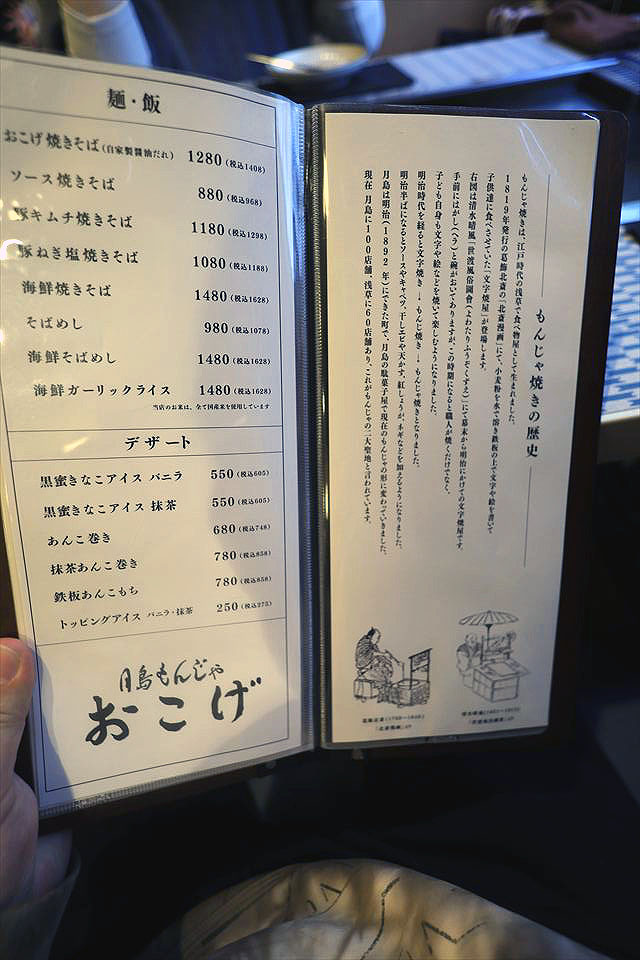 麺・飯
おこげ焼きそば(自家製醤油だれ) 1280(税込1408)
ソース焼きそば 880(税込968)
豚キムチ焼きそば 1180(税込1298)
豚ねぎ塩焼きそば 1080(税込1188)
海鮮焼きそば 1480(税込1628)
そばめし 980(税込1078)
海鮮そばめし 1480(税込1628)
海鮮ガーリックライス 1480(税込1628)
当店のお米は、全て国産米を使用しています
デザート
黒蜜きなこアイス バニラ 550(税込605)
黒蜜きなこアイス 抹茶 550(税込605)
あんこ巻き 680(税込748)
抹茶あんこ巻き 780(税込858)
鉄板あんこもち 780(税込858)
トッピングアイス バニラ・抹茶 250(税込275)
月島もんじゃ
おこげ
もんじゃ焼きの歴史
もんじゃ焼きは、江戸時代の浅草で食べ物屋として生まれました。
1819年発行の葛飾北斎の「北斎漫画」にて、小麦粉を水で溶き鉄板の上で文字や絵を書いて
子供達に食べさせていた「文字焼屋」が登場します。
右図は清水晴風「世渡風俗圖會(よわたりふうぞくずえ)」にて幕末から明治にかけての文字焼屋です。
手前にはがし(ヘラ)と碗がおいてありますが、この時期になると職人が焼くだけでなく、
子ども自身も文字や絵などを焼いて楽しむようになりました。
明治時代を経ると文字焼き → もんじ焼き → もんじゃ焼きとなりました。
明治半ばになるとソースやキャベツ、干しエビや、天かす、紅しょうが、ネギなどを加えるようになりました。
月島は明治(1892年)にできた町で、月島の駄菓子屋で現在のもんじゃの形に変わっていきました。
現在 月島に100店舗、浅草に60店舗あり、これがもんじゃの二大聖地と言われています。
葛飾北斎(1760〜1849)
「北斎漫画」より
清水晴風(1851〜1913)
「世渡風俗圖會」より